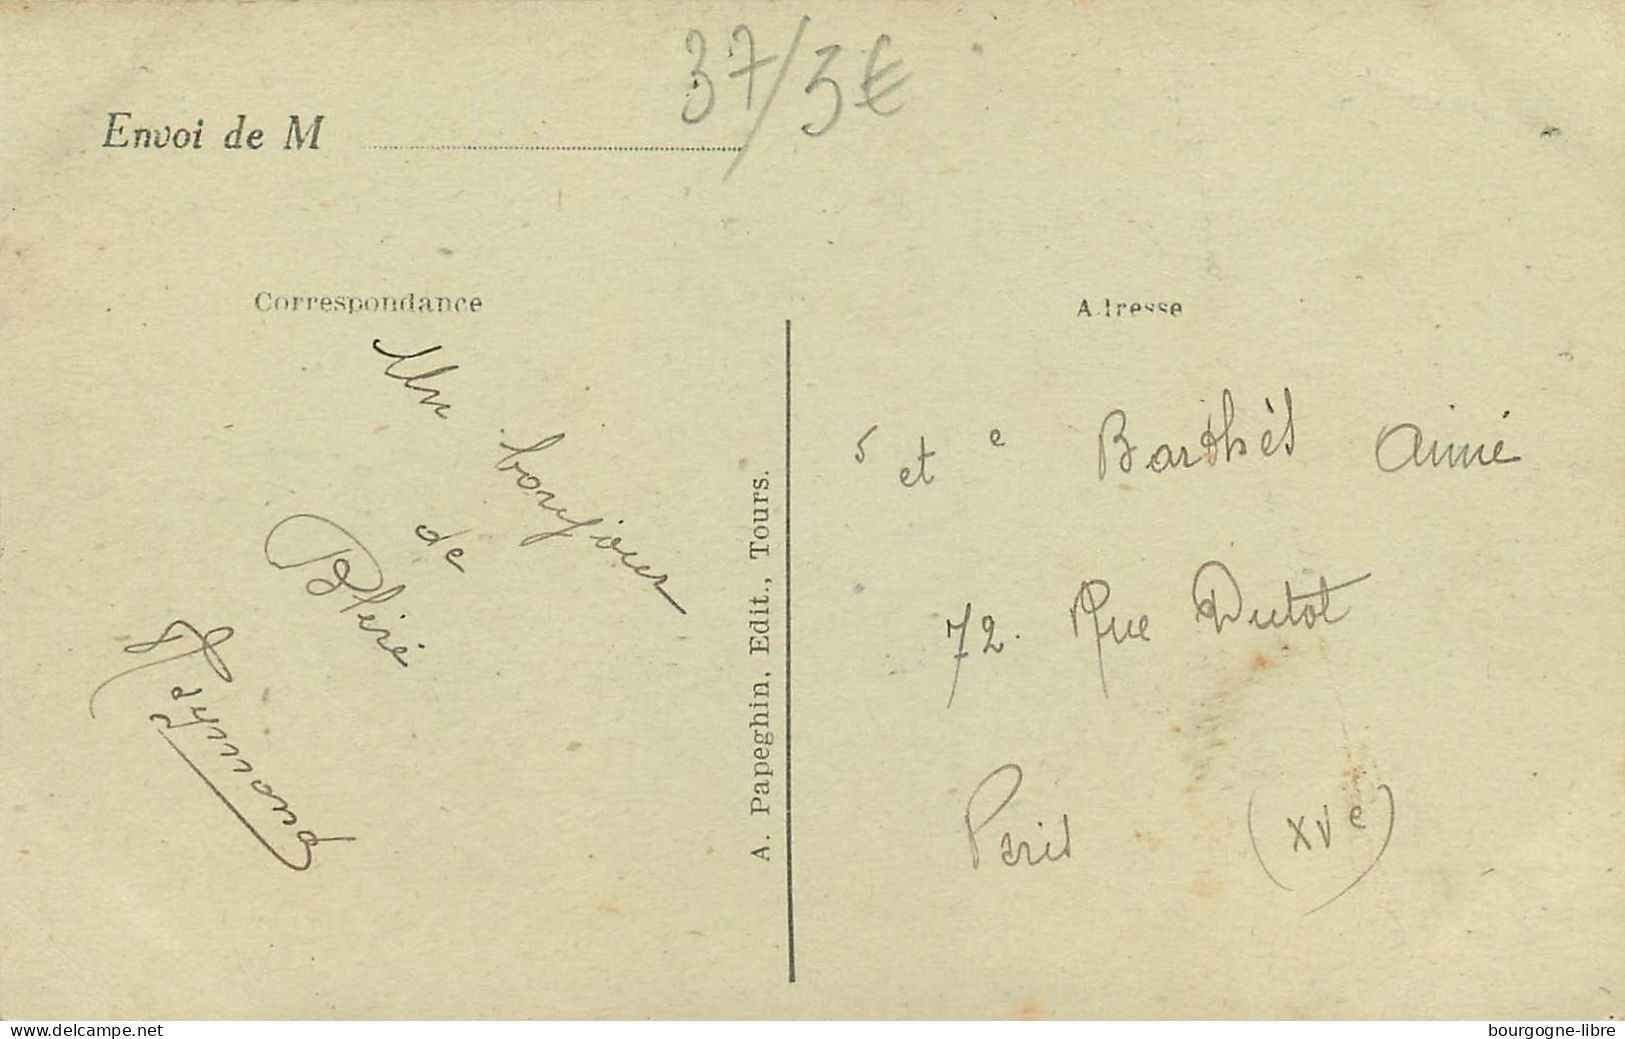 37/3€
Envoi de M
Correspondance
Un bonjour
de
Bléré
Raymond
A. Papeghin, Edit., Tours.
Adresse
et e Barthès Aimé
72. Rue Dutot
Paris (XVe)
www.delcampe.net
bourgogne-libre